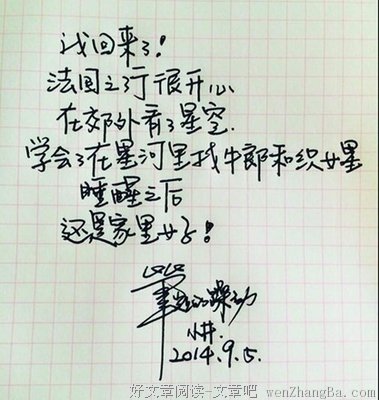 我回来了！
法国之行很开心
在郊外看了星空.
学会了在星河里找牛郎和织女星
睡醒之后
还是家里好！
的躁动
小井.
2014.9.5.
好文章阅读-文章吧 wenZhangBa.com